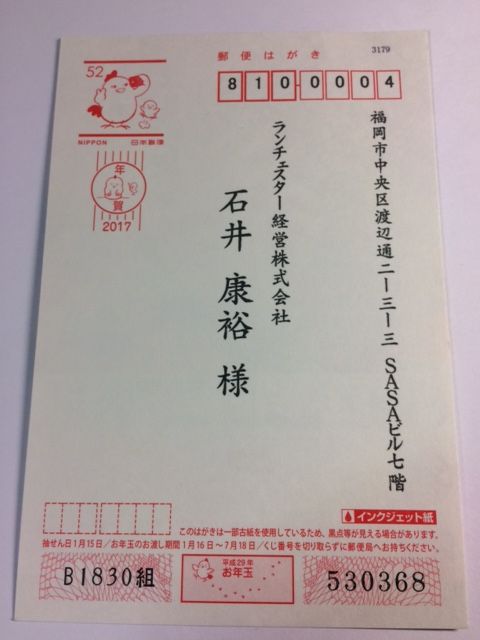 郵便はがき
3179
52
NIPPON 日本郵便
年賀
2017
810-0004
福岡市中央区渡辺通二ー三ー三 SASAビル七階
ランチェスター経営株式会社
石井 康裕 様
インクジェット紙
このはがきは一部古紙を使用しているため、黒点等が見える場合があります。
抽せん日1月15日/お年玉のお渡し期間1月16日~7月18日/くじ番号を切り取らずに郵便局へお持ちください。
B1830組
平成29年
お年玉
530368